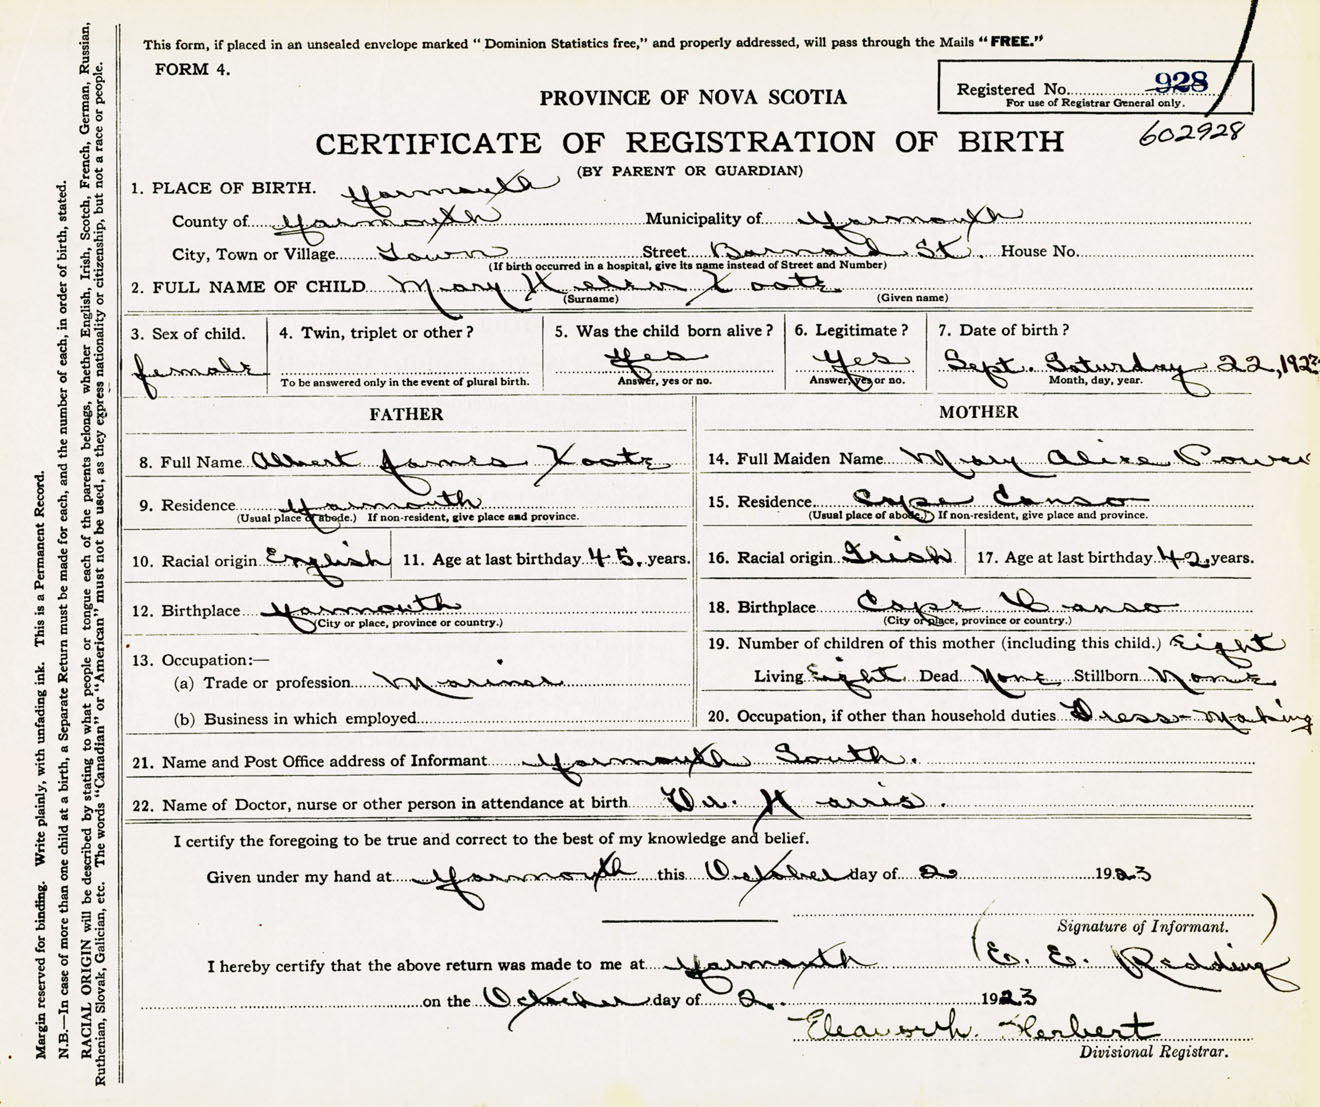 This form, if placed in an unsealed envelope marked "Dominion Statistics free," and properly addressed, will pass through the Mails "FREE."
FORM 4.
Registered No. 928
For use of Registrar General only.
PROVINCE OF NOVA SCOTIA
602928
CERTIFICATE OF REGISTRATION OF BIRTH
(BY PARENT OR GUARDIAN)
1. PLACE OF BIRTH. Yarmouth
County of Yarmouth Municipality of Yarmouth
City, Town or Village Town Street Barnard St. House No.
(If birth occurred in a hospital, give its name instead of Street and Number)
2. FULL NAME OF CHILD Mary Helen
(Surname) (Given name)
3. Sex of child. 4. Twin, triplet or other? 5. Was the child born alive? 6. Legitimate? 7. Date of birth?
female Yes Yes Sept. Saturday 22, 1923
To be answered only in the event of plural birth. Answer, yes or no. Answer, yes or no. Month, day, year.
FATHER MOTHER
8. Full Name Albert James 14. Full Maiden Name Mary Alice Power
9. Residence Yarmouth 15. Residence Cape Canso
(Usual place of abode.) If non-resident, give place and province. (Usual place of abode.) If non-resident, give place and province.
10. Racial origin English 11. Age at last birthday 45. years. 16. Racial origin Irish 17. Age at last birthday 42. years.
12. Birthplace Yarmouth 18. Birthplace Cape Canso
(City or place, province or country.) (City or place, province or country.)
19. Number of children of this mother (including this child.) Eight
13. Occupation:—
(a) Trade or profession Mariner Living Eight Dead None Stillborn None
(b) Business in which employed 20. Occupation, if other than household duties Dress-Making
21. Name and Post Office address of Informant Yarmouth South.
22. Name of Doctor, nurse or other person in attendance at birth Dr. Harris.
I certify the foregoing to be true and correct to the best of my knowledge and belief.
Given under my hand at Yarmouth this October day of 2 1923
Signature of Informant.
I hereby certify that the above return was made to me at Yarmouth (E. E. Redding)
on the October day of 2. 1923
Herbert
Divisional Registrar.
Margin reserved for binding. Write plainly, with unfading ink. This is a Permanent Record.
N.B.—In case of more than one child at a birth, a Separate Return must be made for each, and the number of each, in order of birth, stated.
RACIAL ORIGIN will be described by stating to what people or tongue each of the parents belongs, whether English, Irish, Scotch, French, German, Russian,
Ruthenian, Slovak, Galician, etc. The words "Canadian" or "American" must not be used, as they express nationality or citizenship, but not a race or people.